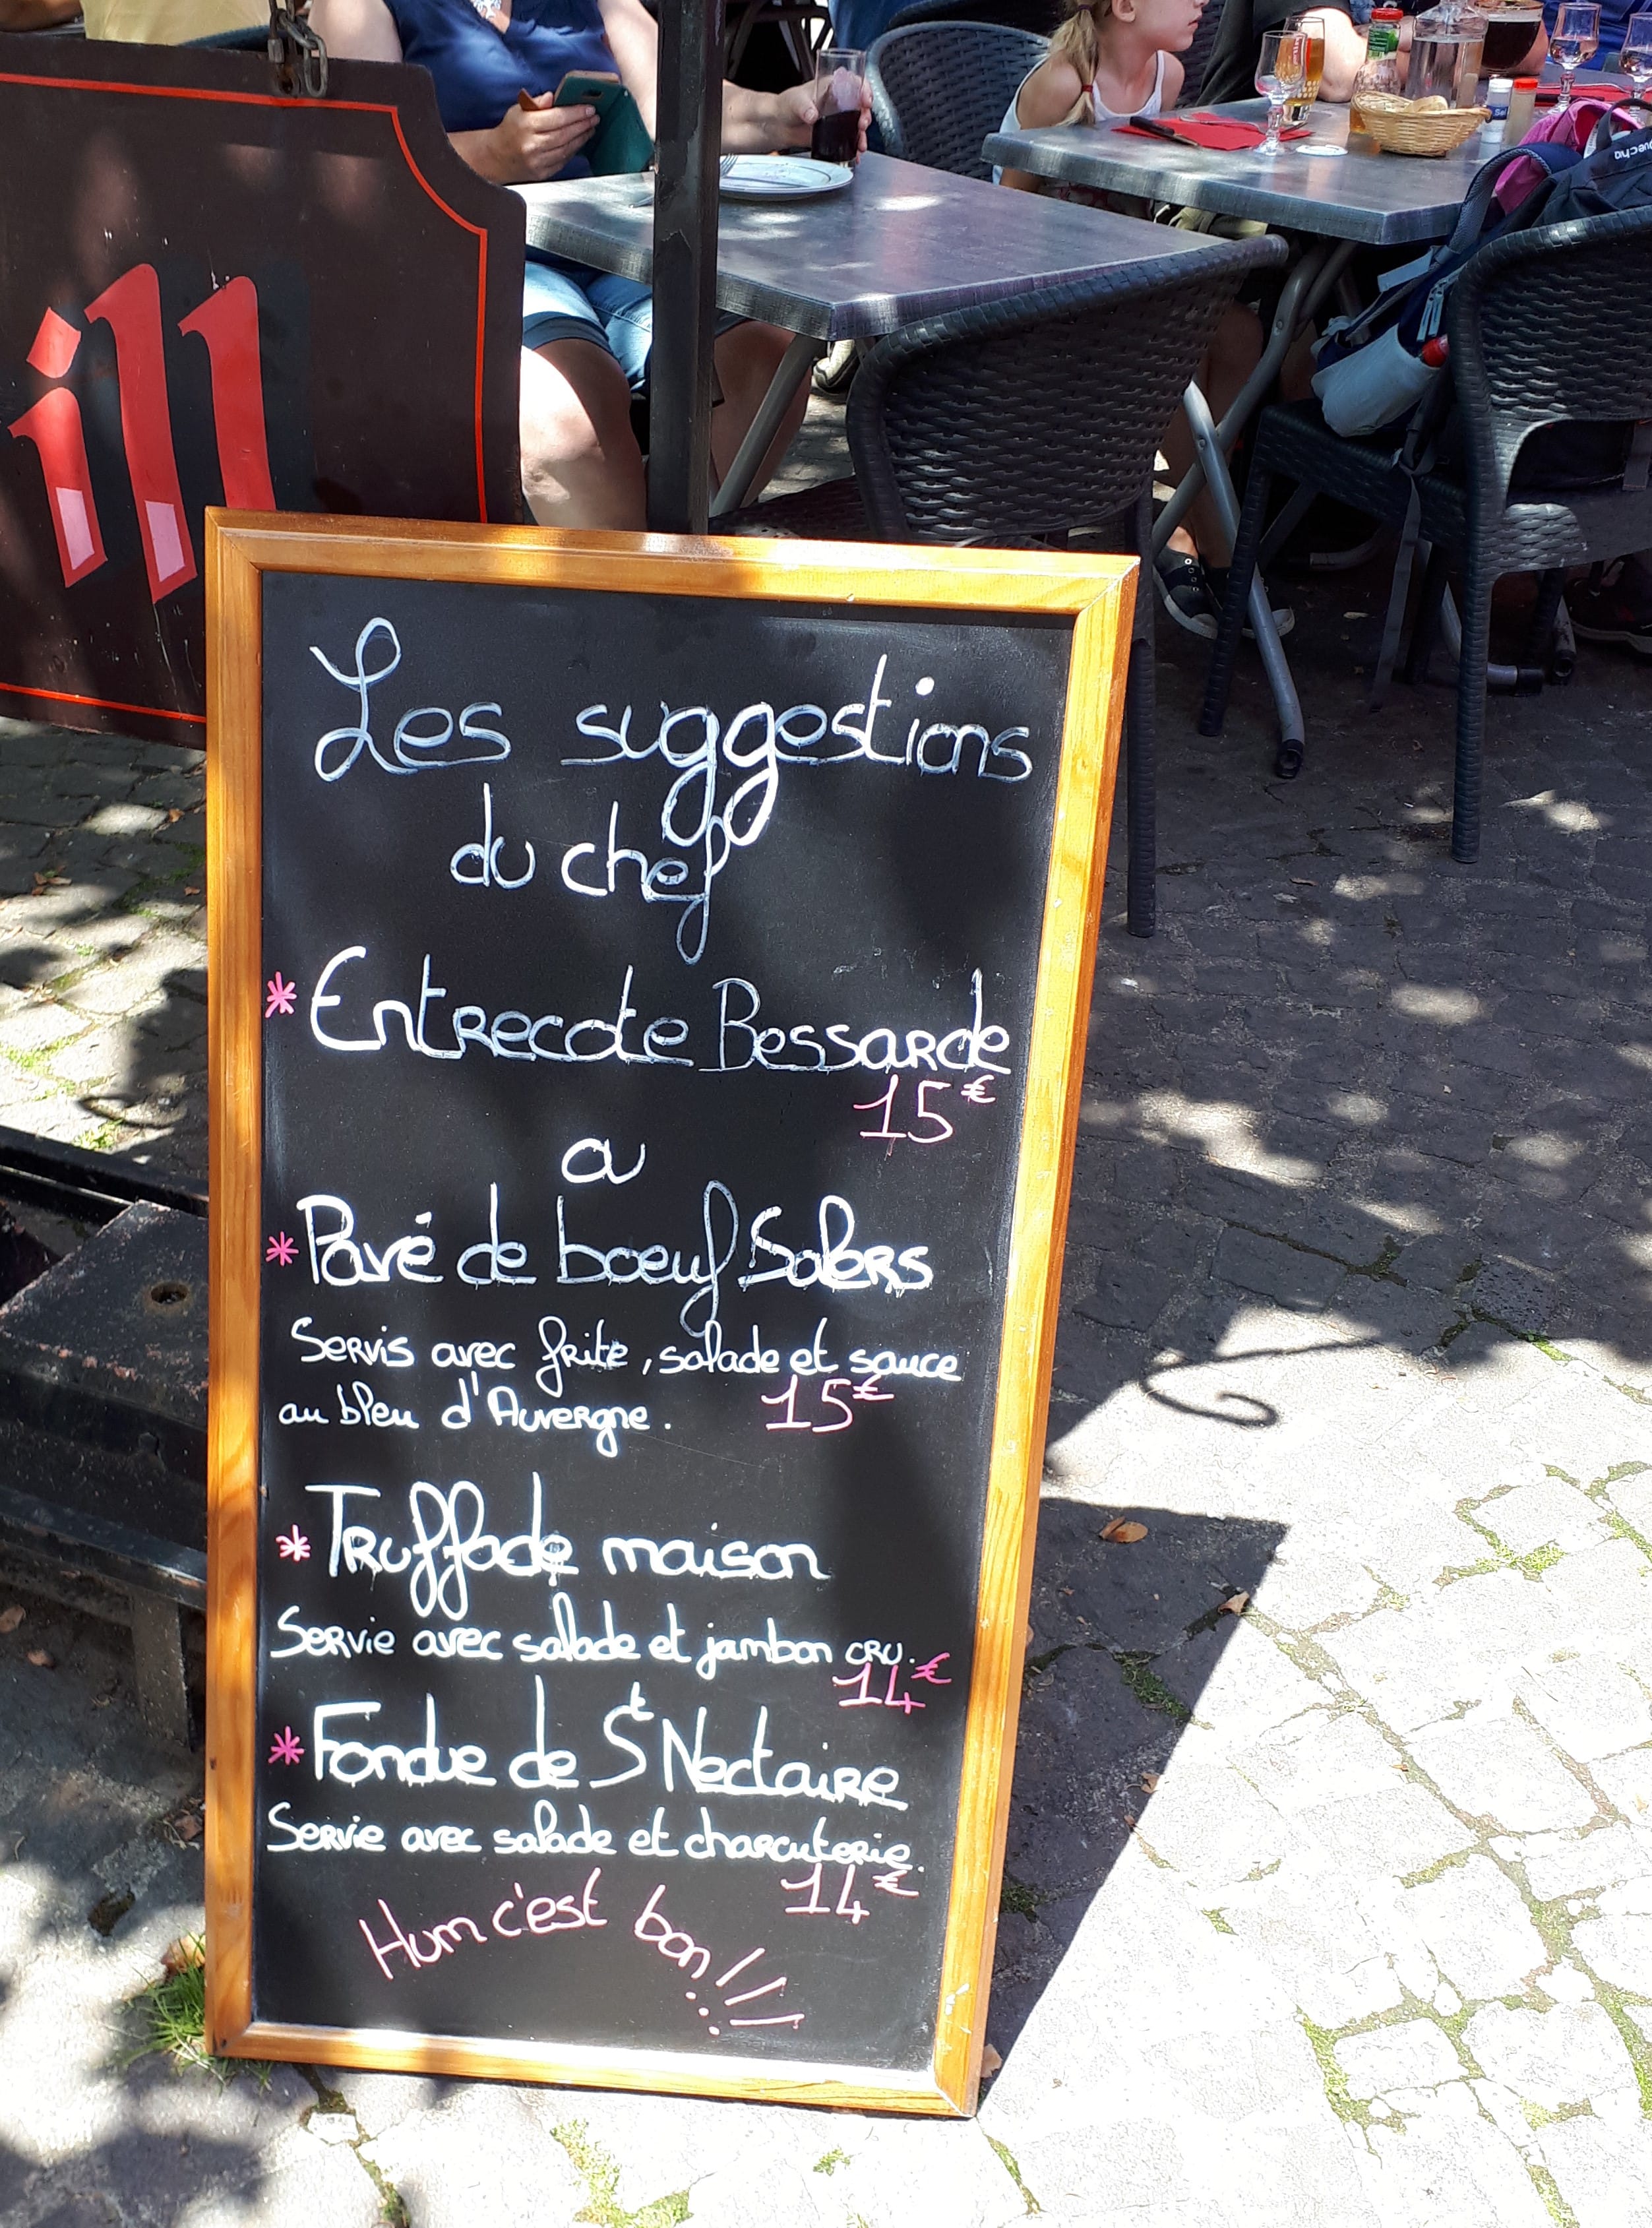 ill
Les suggestions
du chef
* Entrecote Bessarde
15€
ou
* Pavé de boeuf Salers
Servis avec frite, salade et sauce
au bleu d'Auvergne. 15€
* Truffade maison
Servie avec salade et jambon cru.
14€
* Fondue de St Nectaire
Servie avec salade et charcuterie.
14€
Hum c'est bon!!!